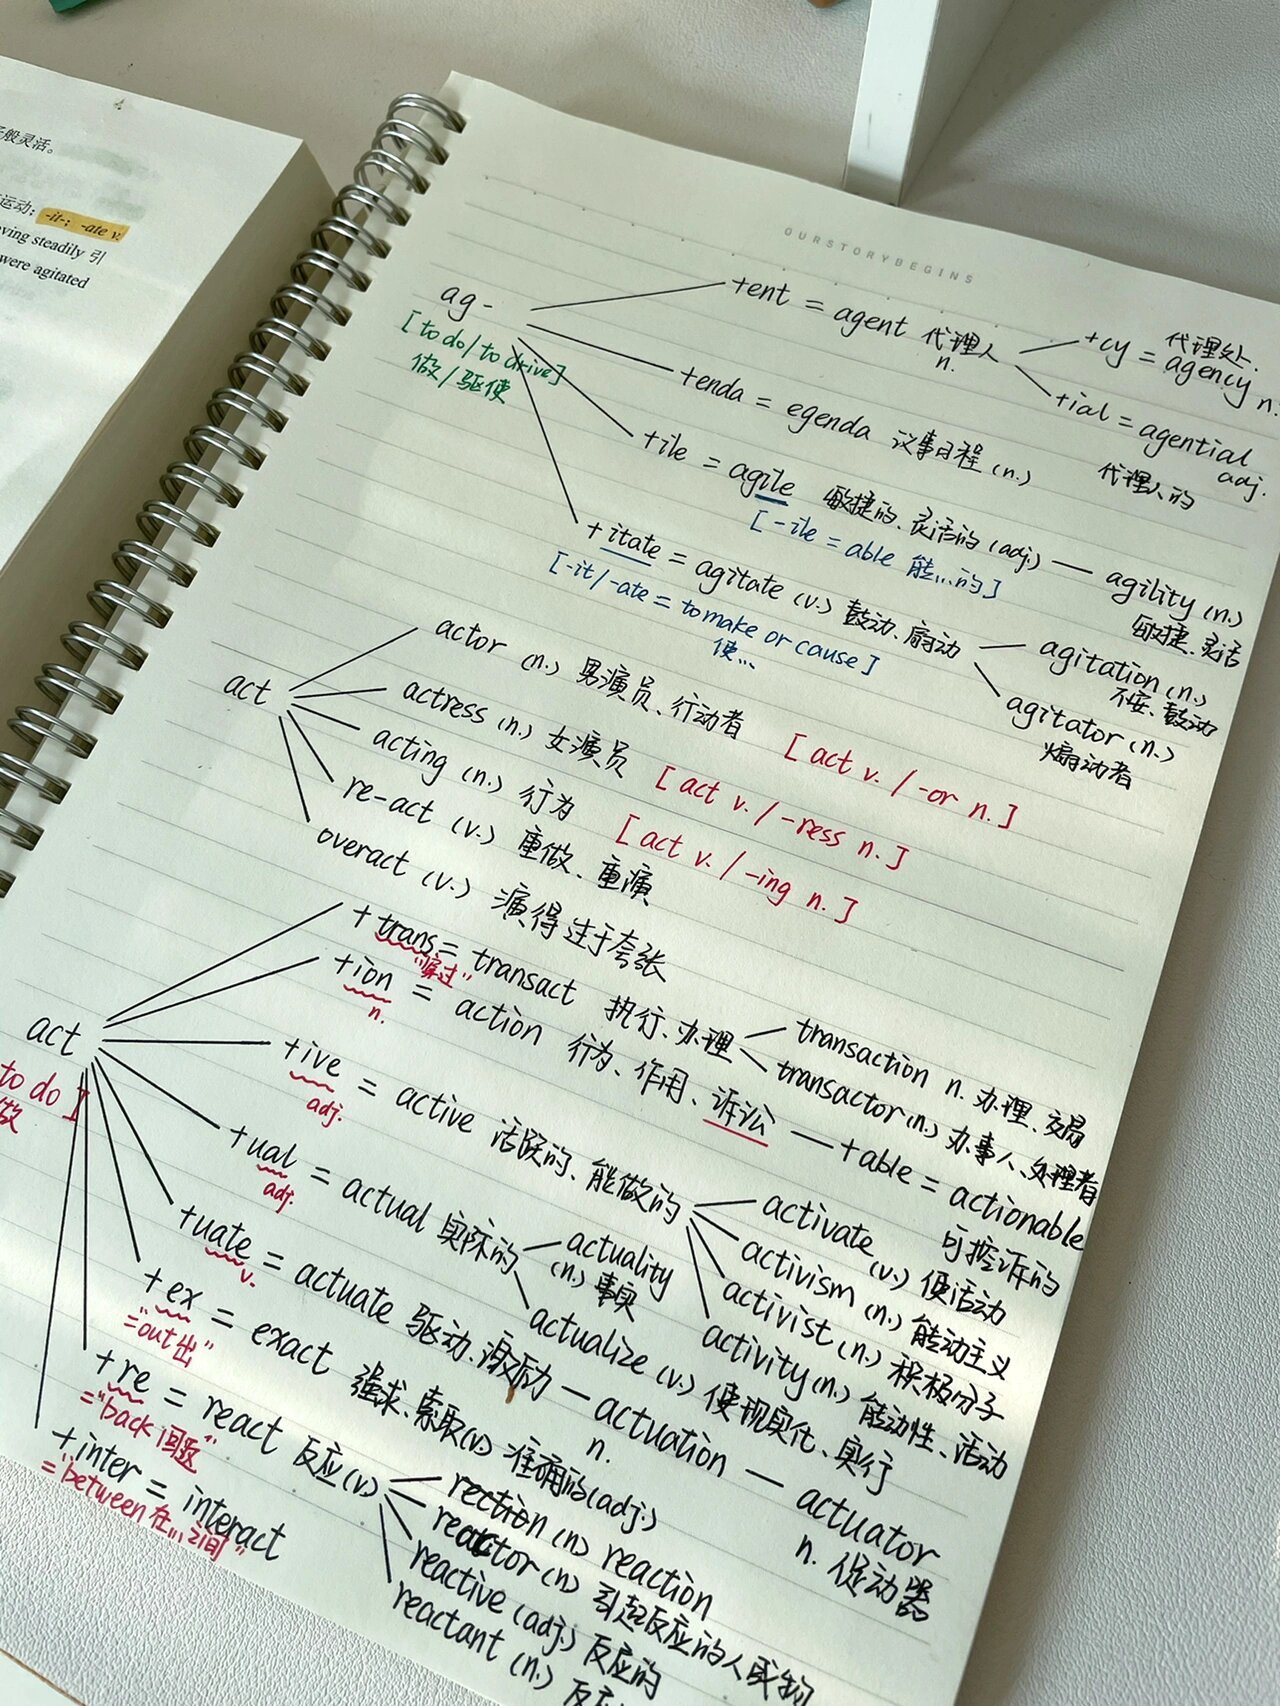 般灵活。
运动；-it-；-ate v.
ving steadily 引
were agitated
OURSTORYBEGINS
ag-
[to do/to drive]
做/驱使
+ent = agent 代理人 n.
+cy = agency n. 代理处
+ial = agential adj.
代理人的
+enda = egenda 议事日程(n.)
+ile = agile 敏捷的、灵活的(adj.) — agility(n.)
敏捷、灵活
[-ile = able 能...的]
+itate = agitate (v.) 鼓动、扇动
[-it/-ate = to make or cause]
使...
agitation(n.)
不安、鼓动
agitator(n.)
煽动者
act
actor (n.) 男演员、行动者 [act v./-or n.]
actress (n.) 女演员 [act v./-ress n.]
acting (n.) 行为 [act v./-ing n.]
re-act (v.) 重做、重演
overact (v.) 演得过于夸张
act
to do]
做
+trans = transact 执行、办理
"穿过"
transaction n. 办理、交易
transactor(n.) 办事人、处理者
+ion = action 行为、作用、诉讼 — +able = actionable
n.
可控诉的
+ive = active 活跃的、能做的
adj.
activate (v.) 使活动
activism (n.) 能动主义
activist (n.) 积极分子
activity(n.) 能动性、活动
+ual = actual 实际的
adj.
actuality
(n.) 事实
actualize (v.) 使现实化、实行
+uate = actuate 驱动、激励 — actuation — actuator
v.
n.
n. 促动器
+ex = exact 强求、索取(v) 准确的(adj.)
="out出"
+re = react 反应(v.)
="back回"
rection (n) reaction
reactor (n) 引起反应的人或物
reactive (adj.) 反应的
reactant (n.)
+inter = interact
="between在...之间"